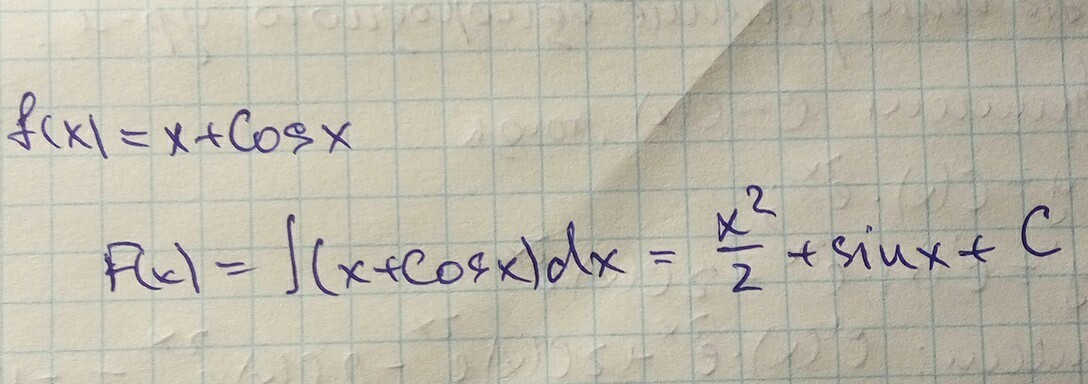 f(x) = x + Cos x
F(x) = ∫(x + Cos x) dx = x²/2 + sin x + C